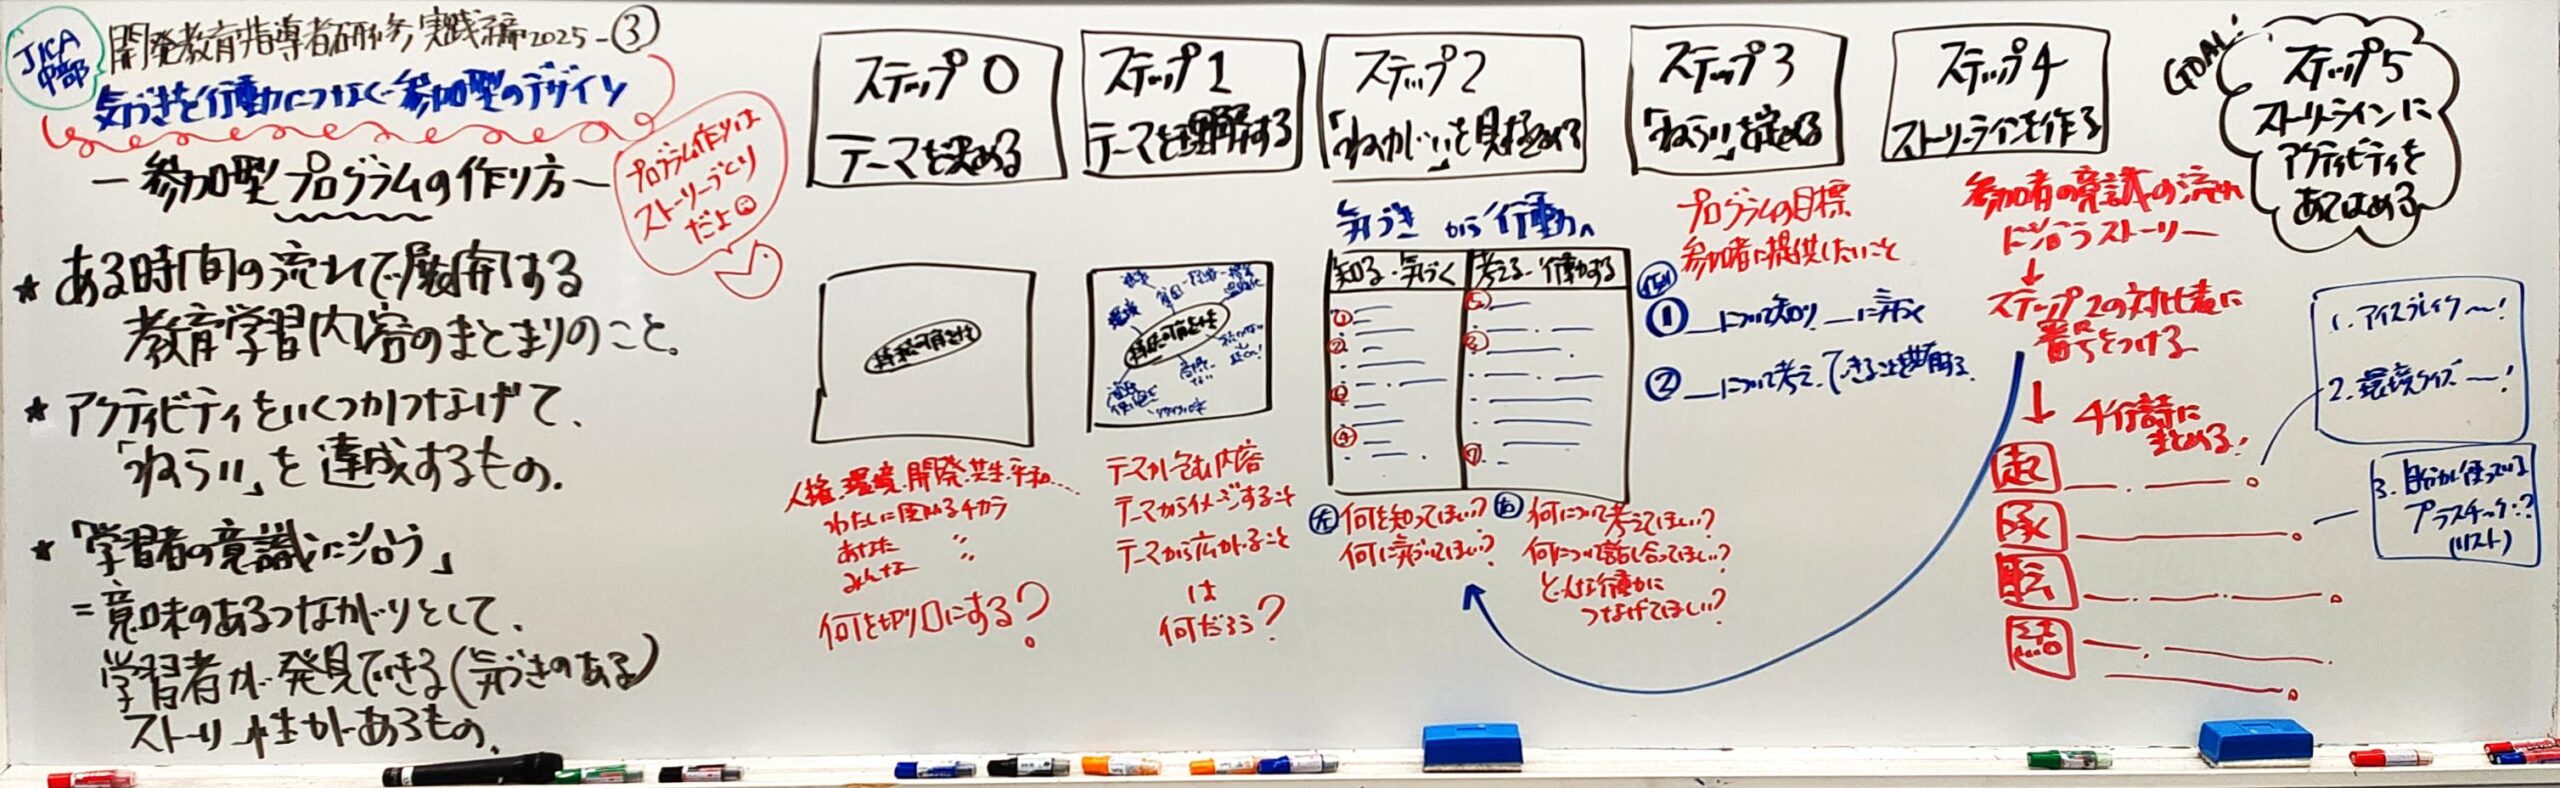 JICA
中部
開発教育指導者研修 実践編2025-③
気づきを行動につなぐ参加型のデザイン
プログラム作りは
ストーリーづくり
だよ
ー参加型プログラムの作り方ー
★ ある時間の流れで展開する
教育学習内容のまとまりのこと。
★ アクティビティをいくつかつなげて、
「ねらい」を達成するもの。
★「学習者の意識に沿う」
=意味のあるつながりとして、
学習者が発見できる(気づきのある)
ストーリー性があるもの。
ステップ0
テーマを決める
持続可能性
人権.環境.開発.共生.平和...
わたしに
あなた
みんな
何を切り口にする?
ステップ1
テーマを理解する
環境
持続可能性
テーマが含む内容
テーマからイメージすること
テーマから広がること
は
何だろう?
ステップ2
「ねがい」を見極める
気づきから行動へ
知る・気づく
考える・行動する
①
②
③
④
⑤
⑥
⑦
左 何を知ってほしい?
何に気づいてほしい?
右 何について考えてほしい?
何について話し合ってほしい?
どんな行動に
つなげてほしい?
ステップ3
「ねらい」を定める
プログラムの目標
参加者に提供したいこと
例
①__について知り、__に気づく
②__について考え、できることを共有する。
ステップ4
ストーリーラインを作る
参加者の意識の流れ
に沿うストーリー
↓
ステップ2の対比表に
番号をつける
↓
4行詩に
まとめる!
起
承
転
結
GOAL!
ステップ5
ストーリーラインに
アクティビティを
あてはめる
1. アイスブレイク〜!
2. 環境クイズ〜!
3. 自分が使っている
プラスチック??
(リスト)